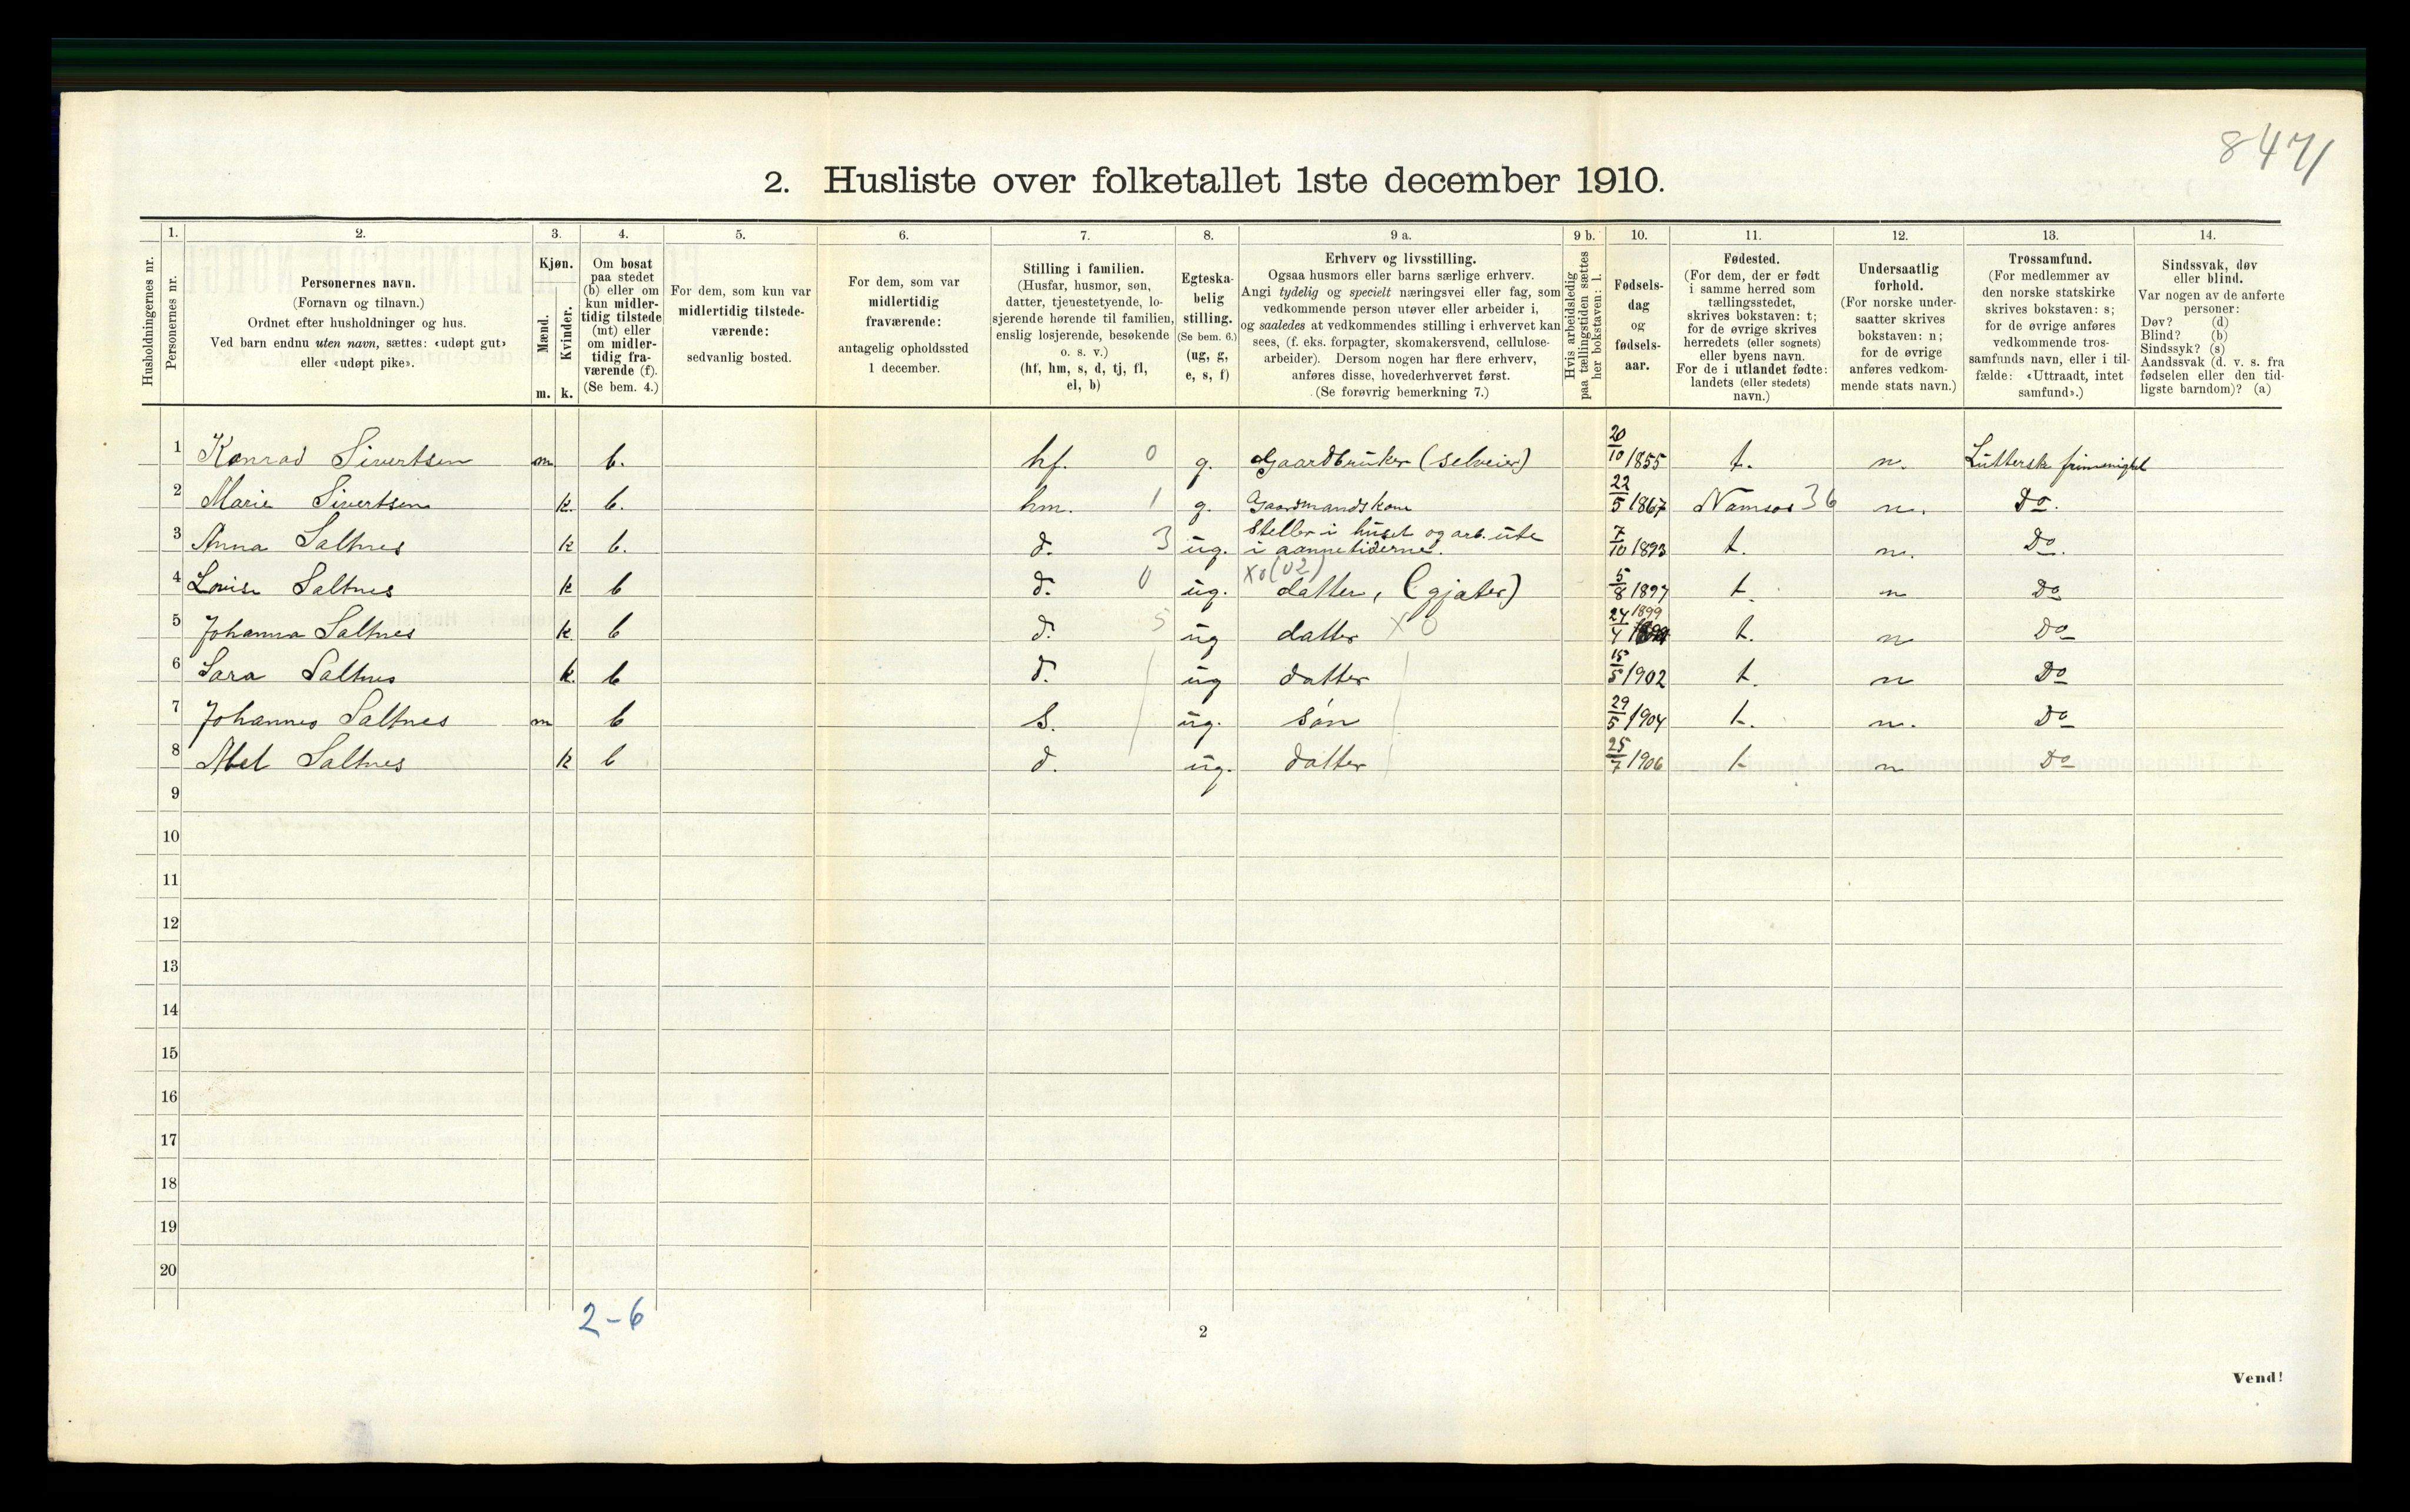 8471
2. Husliste over folketallet 1ste december 1910.
Husholdningernes nr.
1.
Personernes nr.
2.
Personernes navn.
(Fornavn og tilnavn.)
Ordnet efter husholdninger og hus.
Ved barn endnu uten navn, sættes: «udøpt gut»
eller «udøpt pike».
3.
Kjøn.
Mænd.
Kvinder.
m. k.
4.
Om bosat
paa stedet
(b) eller om
kun midler-
tidig tilstede
(mt) eller
om midler-
tidig fra-
værende (f).
(Se bem. 4.)
5.
For dem, som kun var
midlertidig tilstede-
værende:
sedvanlig bosted.
6.
For dem, som var
midlertidig
fraværende:
antagelig opholdssted
1 december.
7.
Stilling i familien.
(Husfar, husmor, søn,
datter, tjenestetyende, lo-
sjerende hørende til familien,
enslig losjerende, besøkende
o. s. v.)
(hf, hm, s, d, tj, fl,
el, b)
8.
Egteska-
belig
stilling.
(Se bem. 6.)
(ug, g,
e, s, f)
9 a.
Erhverv og livsstilling.
Ogsaa husmors eller barns særlige erhverv.
Angi tydelig og specielt næringsvei eller fag, som
vedkommende person utøver eller arbeider i,
og saaledes at vedkommendes stilling i erhvervet kan
sees, (f. eks. forpagter, skomakersvend, cellulose-
arbeider). Dersom nogen har flere erhverv,
anføres disse, hovederhvervet først.
(Se forøvrig bemerkning 7.)
9 b.
Hvis arbeidsledig
paa tællingstiden sættes
her bokstaven: l.
10.
Fødsels-
dag
og
fødsels-
aar.
11.
Fødested.
(For dem, der er født
i samme herred som
tællingsstedet,
skrives bokstaven: t;
for de øvrige skrives
herredets (eller sognets)
eller byens navn.
For de i utlandet fødte:
landets (eller stedets)
navn.)
12.
Undersaatlig
forhold.
(For norske under-
saatter skrives
bokstaven: n;
for de øvrige
anføres vedkom-
mende stats navn.)
13.
Trossamfund.
(For medlemmer av
den norske statskirke
skrives bokstaven: s;
for de øvrige anføres
vedkommende tros-
samfunds navn, eller i til-
fælde: «Uttraadt, intet
samfund».)
14.
Sindssvak, døv
eller blind.
Var nogen av de anførte
personer:
Døv? (d)
Blind? (b)
Sindssyk? (s)
Aandssvak (d. v. s. fra
fødselen eller den tid-
ligste barndom)? (a)
1 Konrad Sivertsen m b. hf. 0 g. Gaardbruker (selveier) 20/10 1855 t. n. Luttersk frimenighet
2 Marie Sivertsen k. b. hm. 1 g. Gaardmandskone 22/5 1867 Namsos 36 n. Do.
3 Anna Saltnes k b. d. 3 ug. Steller i huset og arb. ute
i aannetiderne. 7/10 1893 t. n. Do.
X0(02)
4 Lovise Saltnes k b d. 0 ug. datter, (gjæter) 5/8 1897 t. n Do
5 Johanna Saltnes k. b d. 5 ug datter X0 24/4 1899 t. n Do
6 Sara Saltnes k. b d. ug datter 15/5 1902 t. n Do
7 Johannes Saltnes m b s. ug. søn 29/5 1904 t. n. Do
8 Abel Saltnes k b d. ug. datter 25/7 1906 t n Do
9
10
11
12
13
14
15
16
17
18
19
20
2-6
2
Vend!